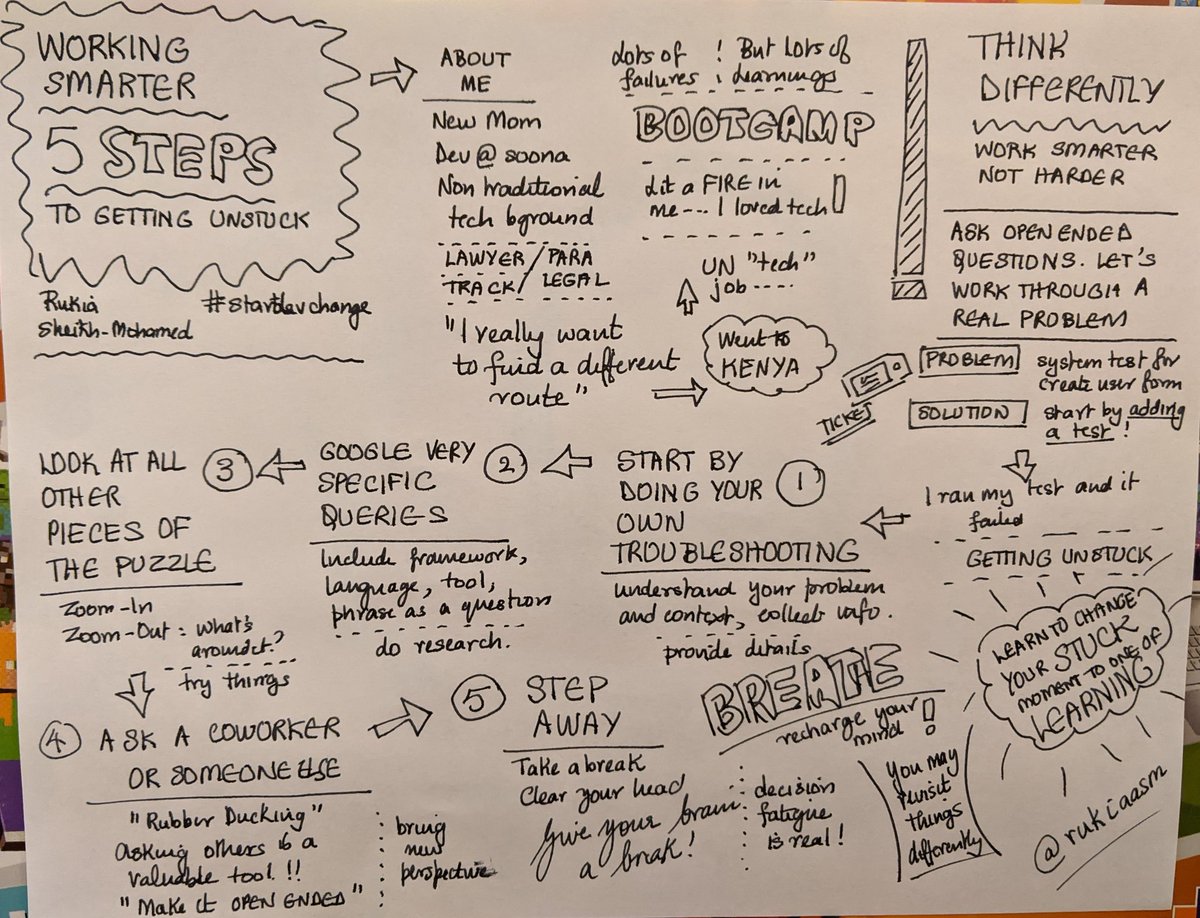 WORKING
SMARTER
5 STEPS
TO GETTING UNSTUCK
Rukia
Sheikh-Mohamed
#startdevchange
ABOUT
ME
New Mom
Dev @ soona
Non traditional
tech bground
LAWYER / PARA
TRACK / LEGAL
"I really want
to find a different
route"
Went to
KENYA
UN "tech"
job ----
Lit a FIRE in
me --- I loved tech!
BOOTCAMP
Lots of ! But lots of
failures ! learnings
THINK
DIFFERENTLY
WORK SMARTER
NOT HARDER
ASK OPEN ENDED
QUESTIONS. LET'S
WORK THROUGH A
REAL PROBLEM
TICKET
PROBLEM system test for
create user form
SOLUTION start by adding
a test!
I ran my test and it
failed
GETTING UNSTUCK
LEARN TO CHANGE
YOUR STUCK
MOMENT TO ONE OF
LEARNING
START BY
DOING YOUR 1
OWN
TROUBLESHOOTING
understand your problem
and context, collect info.
provide details
GOOGLE VERY 2
SPECIFIC
QUERIES
Include framework,
language, tool,
phrase as a question
do research.
LOOK AT ALL 3
OTHER
PIECES OF
THE PUZZLE
Zoom-In
Zoom-Out: what's
around it?
try things
4 ASK A COWORKER
OR SOMEONE ELSE
"Rubber Ducking"
asking others is a
valuable tool!!
"Make it OPEN ENDED"
bring
new
perspective
5 STEP
AWAY
Take a break
Clear your head
Give your brain
a break!
BREATHE
recharge your
mind!
decision
fatigue
is real!
you may
revisit
things
differently
@rukiaasm